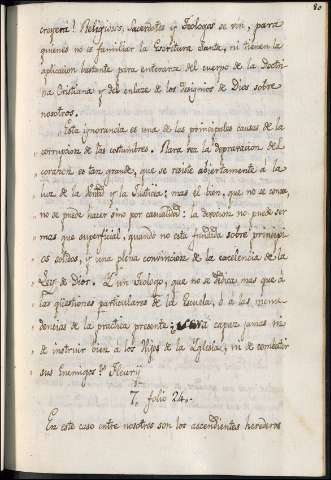 80
creyera! Religiosos, Sacerdotes y Teologos se vén, para
quienes no es familiar la Escritura Santa, ni tienen la
aplicacion bastante para enterarse del cuerpo de la Doctri-
na Christiana y del enlaze de los designios de Dios sobre
nosotros.
Esta ignorancia es una de las principales causas de la
corrupcion de las costumbres. Rara vez la depravacion del
corazon es tan grande, que se resiste abiertamente á la
luz de la Verdad y la Justicia; mas el bien, que no se conoce,
no se puede hacer sino por casualidad: la devocion no puede ser
mas que superficial, quando no está fundada sobre principi-
os solidos, y una plena convincion de la excelencia de la
Ley de Dios. Y un Teologo, que no se dedica mas que á
las questiones particulares de la Escuela, ó a las menu-
dencias de la practica presente; será capaz jamas ni
de instruir bien á los Hijos de la Yglesia, ni de convertir
sus Enemigos? Fleurÿ
7. folio 24.
En este caso entre nosotros son los ascendientes herederos